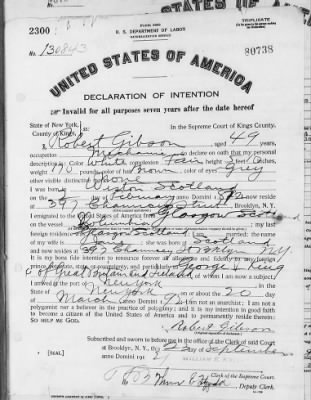 2300
U. S. DEPARTMENT OF LABOR
NATURALIZATION SERVICE
TRIPLICATE
No. 130843
80738
UNITED STATES OF AMERICA
DECLARATION OF INTENTION
Invalid for all purposes seven years after the date hereof
State of New York, ss: In the Supreme Court of Kings County.
County of Kings,
I, Robert Gibson, aged 49 years,
occupation do declare on oath that my personal
description is: Color White, complexion Fair, height 5 feet inches,
weight 170 pounds, color of hair Brown, color of eyes Grey
other visible distinctive marks None
I was born in Scotland
on the day of February, anno Domini; I now reside
at 397 Chauncey Street, Brooklyn, N.Y.
I emigrated to the United States of America from Glasgow Scotland
on the vessel Columbia; my last
foreign residence was Glasgow Scotland; I am married; the name
of my wife is; she was born at Scotland
and now resides at 397 Chauncey St Brooklyn N.Y.
It is my bona fide intention to renounce forever all allegiance and fidelity to any foreign
prince, potentate, state, or sovereignty, and particularly to George V King
of Great Britain and Ireland, of whom I am now a subject;
I arrived at the port of New York
State of New York, on or about the 20 day
of March, anno Domini; I am not an anarchist; I am not a
polygamist nor a believer in the practice of polygamy; and it is my intention in good faith
to become a citizen of the United States of America and to permanently reside therein:
SO HELP ME GOD.
Robert Gibson
Subscribed and sworn to before me in the office of the Clerk of said Court
at Brooklyn, N. Y., this 22 day of September
anno Domini 19
[SEAL]
Clerk of the Supreme Court.
By, Deputy Clerk.